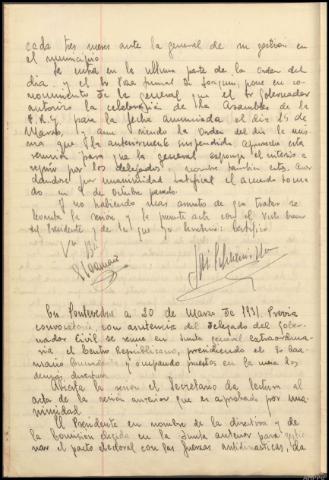 cada tres meses ante la general de su gestion en
el municipio.
Se entra en la ultima parte de la orden del
dia y el Sr
nocimiento de la general que el Sr Gobernador
autorizo la celebración de la Asamblea de la
para la fecha anunciada el dia 15 de
Marzo, y aun siendo la orden del dia la mis
ma que la anteriormente suspendida aprueba esta
reunion para que la general exponga el criterio a
seguir por los delegados
dandose por unanimidad ratificar el acuerdo toma
do en 9 de Octubre pasado.
Y no habiendo mas asuntos de que tratar se
levanta la sesion y la presente acta con el Visto bueno
del Presidente y de lo que yo Secretario: Certifico
Vº Bº
En Pontevedra a 20 de Marzo de 1931. Previa
convocatoria con asistencia del Delegado del Gober
nador Civil se reune en Junta general extraordina
ria el Centro Republicano, presidiendo el Sr
Presidente y ocupando puestos en la mesa los
demas directivos.
Abierta la sesion el Secretario da lectura al
acta de la sesión anterior que es aprobada por una
nimidad.
El Presidente en nombre de la directiva y de
la Comision elegida en la Junta anterior para gestio
nar el pacto electoral con las fuerzas antidinasticas, da